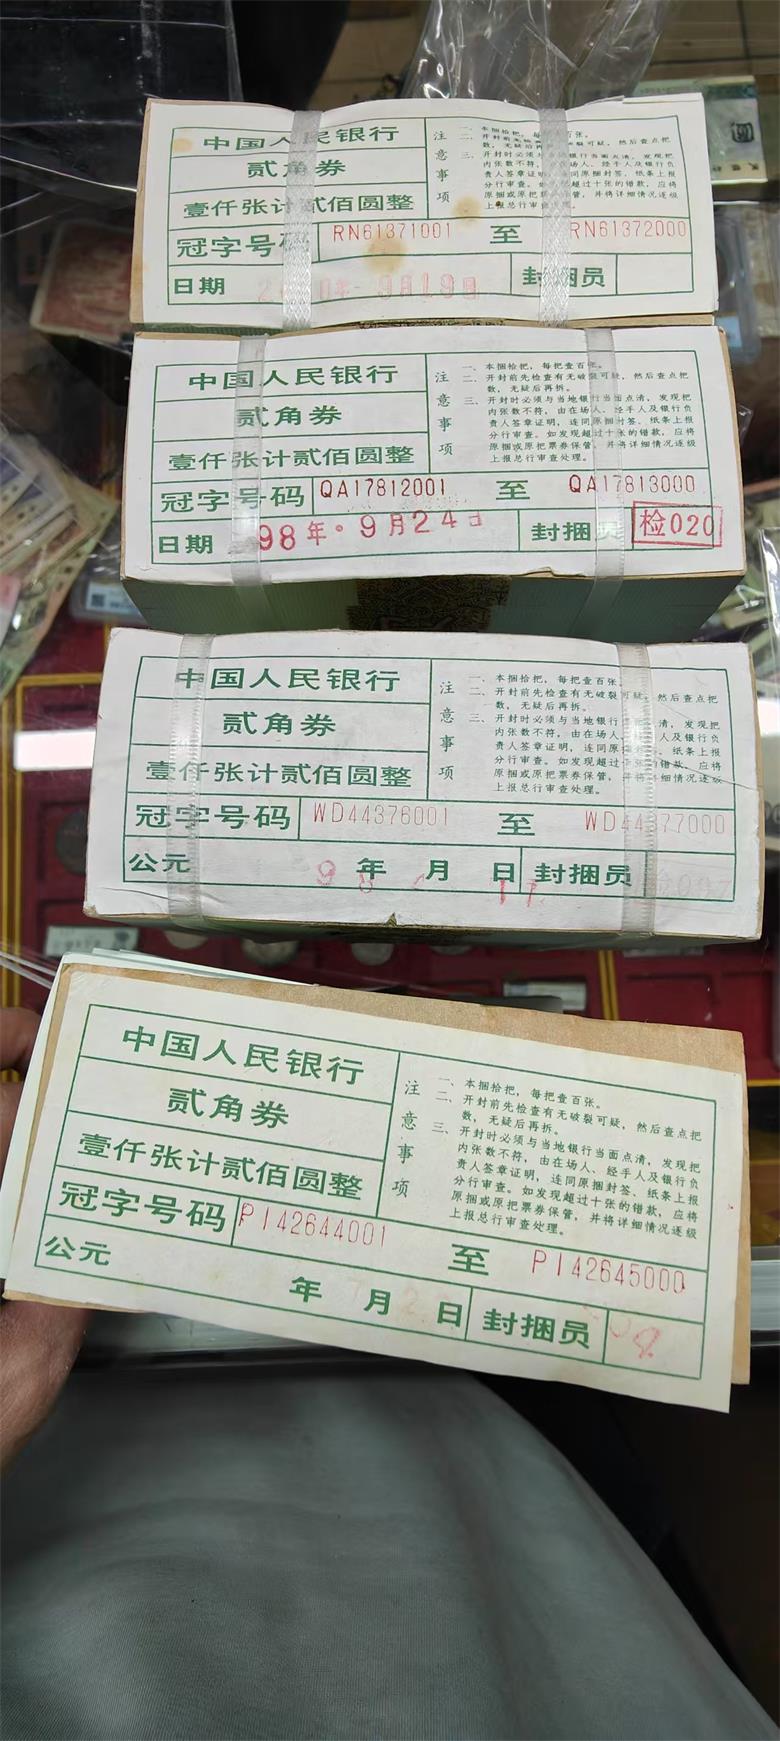 中国人民银行
贰角券
壹仟张计贰佰圆整
冠字号码 RN61371001 至 RN61372000
日期 9月19日 封捆员
注意事项
一、本捆拾把，每 百张。
数，无疑后再拆。
三、开封时必须与当地银行当面点清，发现把
内张数不符，由在场人、经手人及银行负
责人签章证明，连同原捆封签、纸条上报
分行审查。如发现超过十张的错款，应将
原捆或原把票券保管，并将详细情况逐级
上报总行审查处理。
中国人民银行
贰角券
壹仟张计贰佰圆整
冠字号码 QA17812001 至 QA17813000
日期 98年·9月24日 封捆员 检020
注意事项
一、本捆拾把，每把壹百张。
二、开封前先检查有无破裂可疑，然后查点把
数，无疑后再拆。
三、开封时必须与当地银行当面点清，发现把
内张数不符，由在场人、经手人及银行负
责人签章证明，连同原捆封签、纸条上报
分行审查。如发现超过十张的错款，应将
原捆或原把票券保管，并将详细情况逐级
上报总行审查处理。
中国人民银行
贰角券
壹仟张计贰佰圆整
冠字号码 WD44376001 至 WD44377000
公元 98 年 月 日 封捆员
注意事项
一、本捆拾把，每把壹百张。
二、开封前先检查有无破裂可疑，然后查点把
数，无疑后再拆。
三、开封时必须与当地银行当面点清，发现把
内张数不符，由在场人、经手人及银行负
责人签章证明，连同原捆封签、纸条上报
分行审查。如发现超过十张的错款，应将
原捆或原把票券保管，并将详细情况逐级
上报总行审查处理。
中国人民银行
贰角券
壹仟张计贰佰圆整
冠字号码 PI42644001 至 PI42645000
公元 年 月 日 封捆员
注意事项
一、本捆拾把，每把壹百张。
二、开封前先检查有无破裂可疑，然后查点把
数，无疑后再拆。
三、开封时必须与当地银行当面点清，发现把
内张数不符，由在场人、经手人及银行负
责人签章证明，连同原捆封签、纸条上报
分行审查。如发现超过十张的错款，应将
原捆或原把票券保管，并将详细情况逐级
上报总行审查处理。